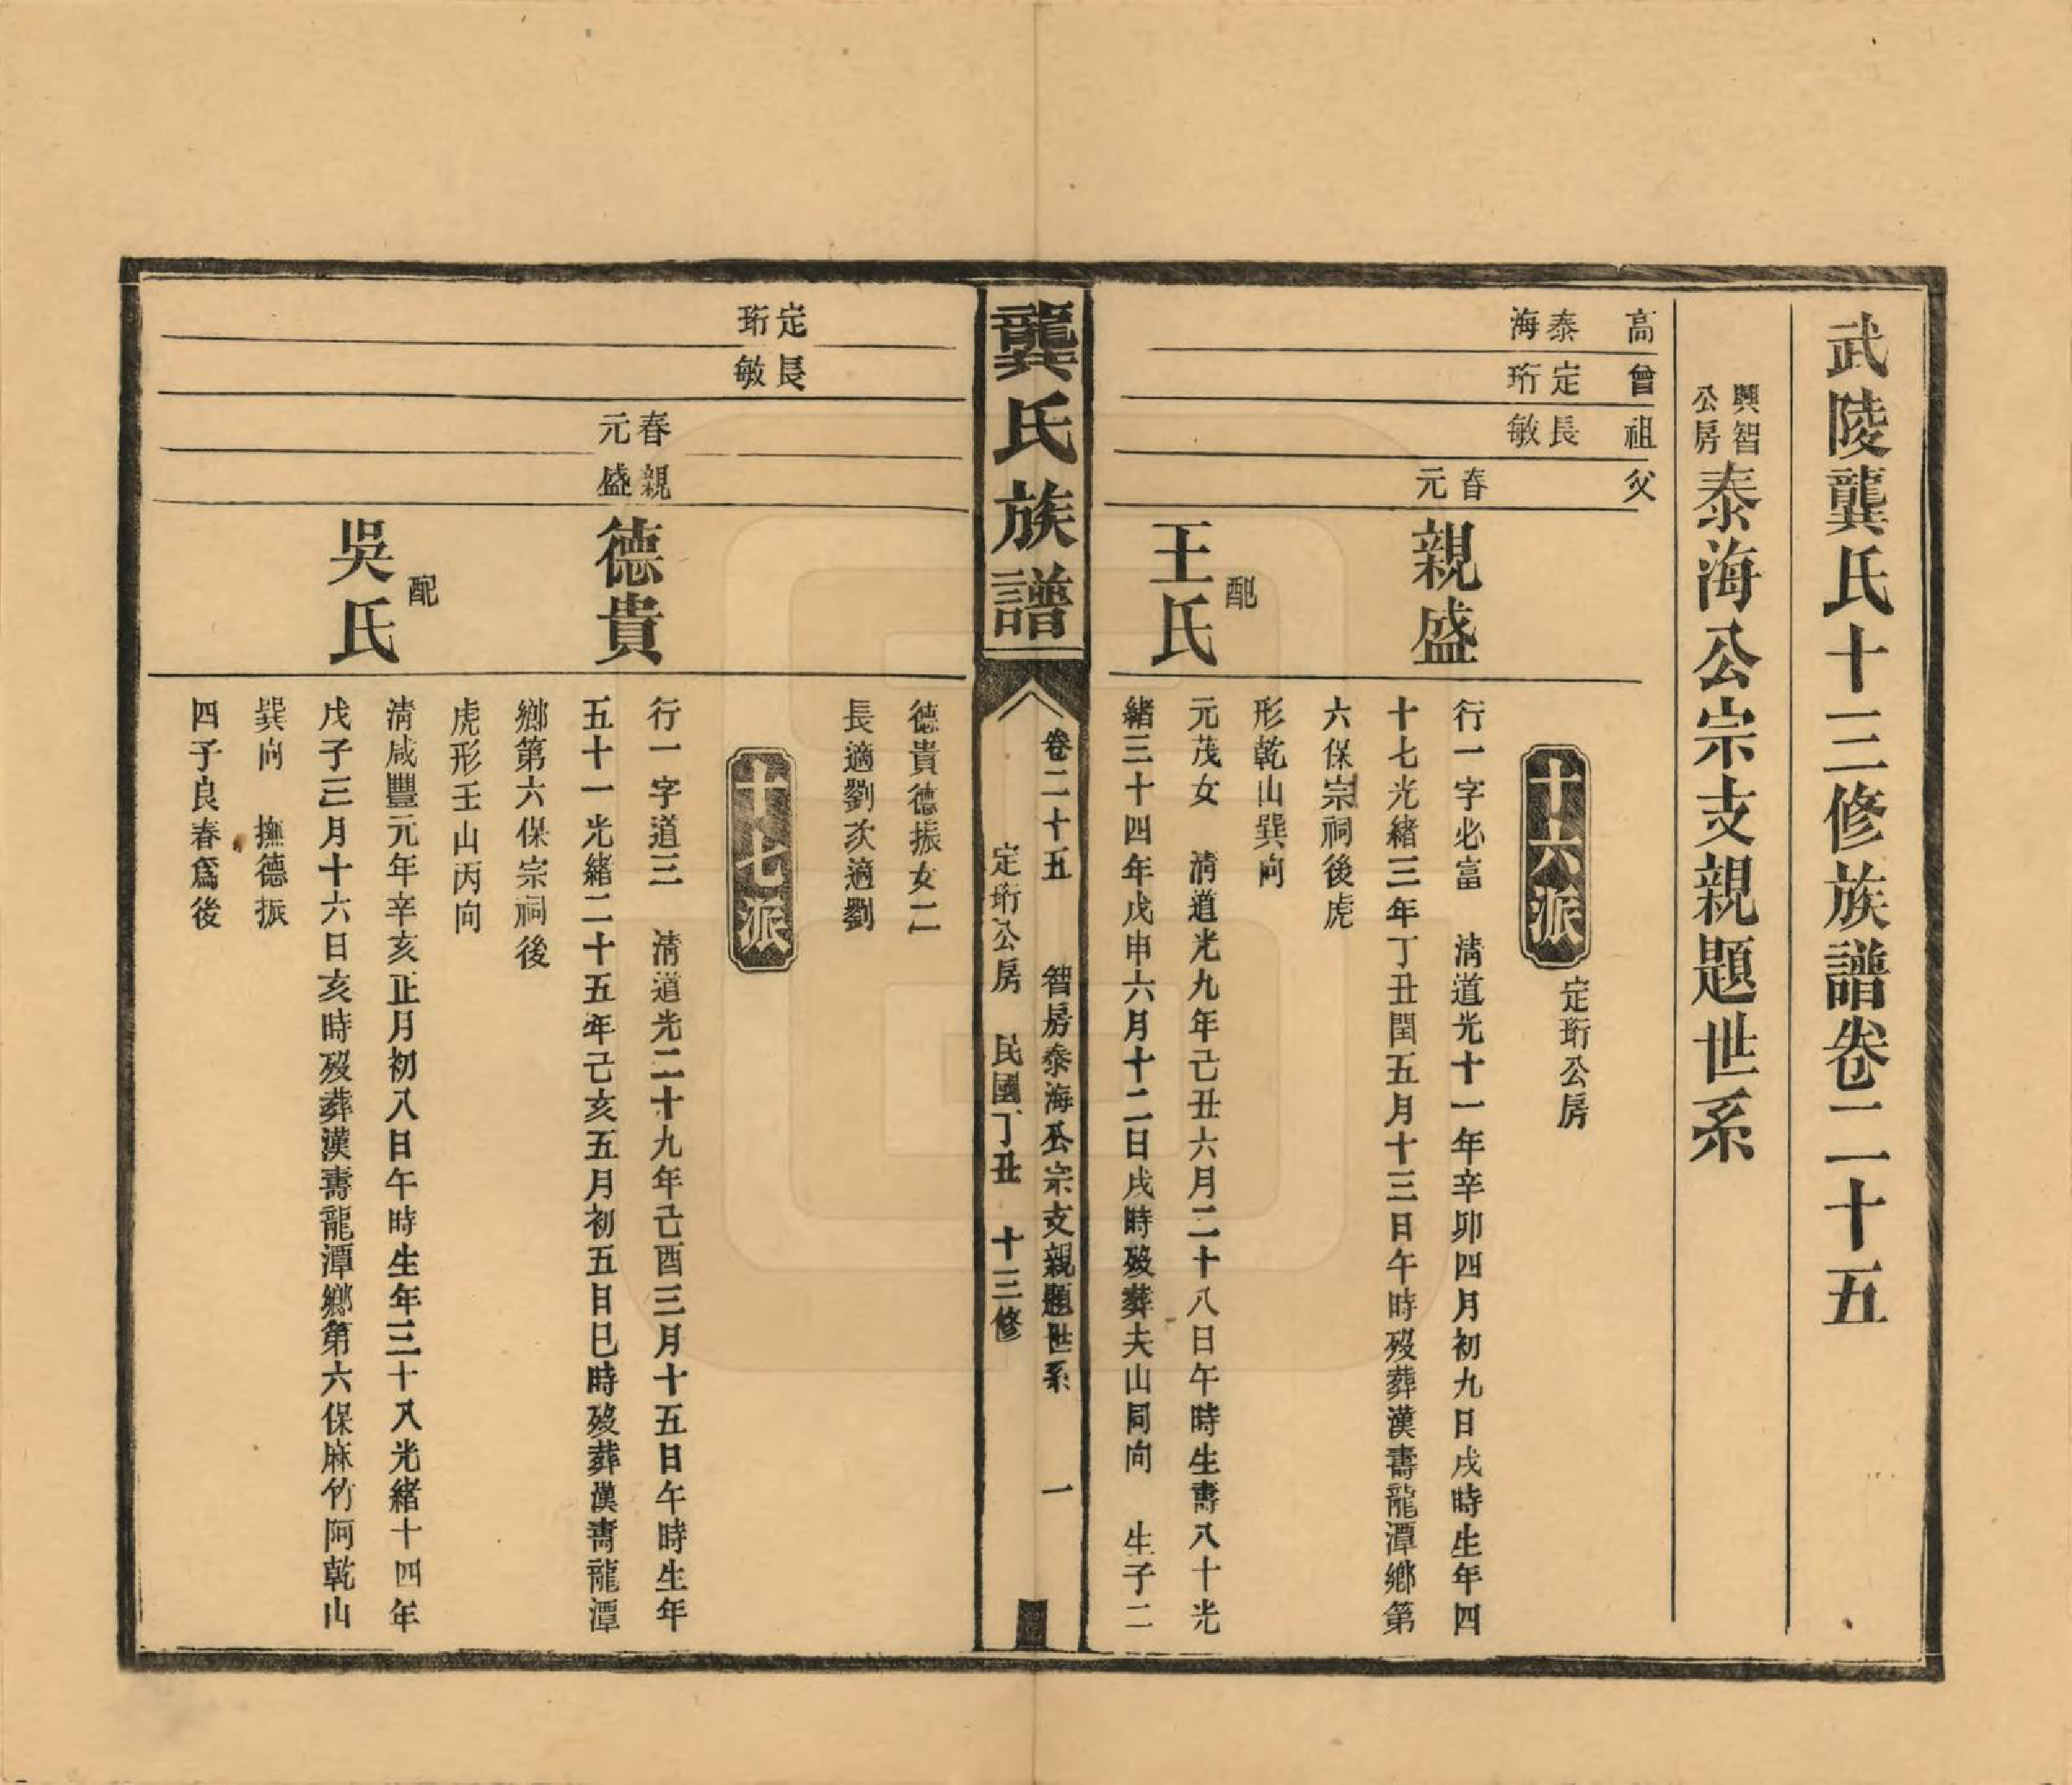 武陵龔氏十三修族譜卷二十五
興智公房
泰海公宗支親題世系
高
曾
祖
父
泰海
定珩
長敏
春元
親盛
十六派
定珩公房
行一字必富　清道光十一年辛卯四月初九日戌時生年四
十七光緒三年丁丑閏五月十三日午時歿葬漢壽龍潭鄉第
六保宗祠後虎
形乾山巽向
配
王氏
元茂女　清道光九年己丑六月二十八日午時生壽八十光
緒三十四年戊申六月十二日戌時歿葬夫山同向　生子二
龔氏族譜
卷二十五　智房泰海公宗支親題世系　一
定珩公房　民國丁丑　十三修
德貴德振女二
長適劉次適劉
定珩
長敏
春元
親盛
十七派
德貴
行一字道三　清道光二十九年己酉三月十五日午時生年
五十一光緒二十五年己亥五月初五日巳時歿葬漢壽龍潭
鄉第六保宗祠後
虎形壬山丙向
配
吳氏
清咸豐元年辛亥正月初八日午時生年三十八光緒十四年
戊子三月十六日亥時歿葬漢壽龍潭鄉第六保麻竹阿乾山
巽向　撫德振
四子良春爲後